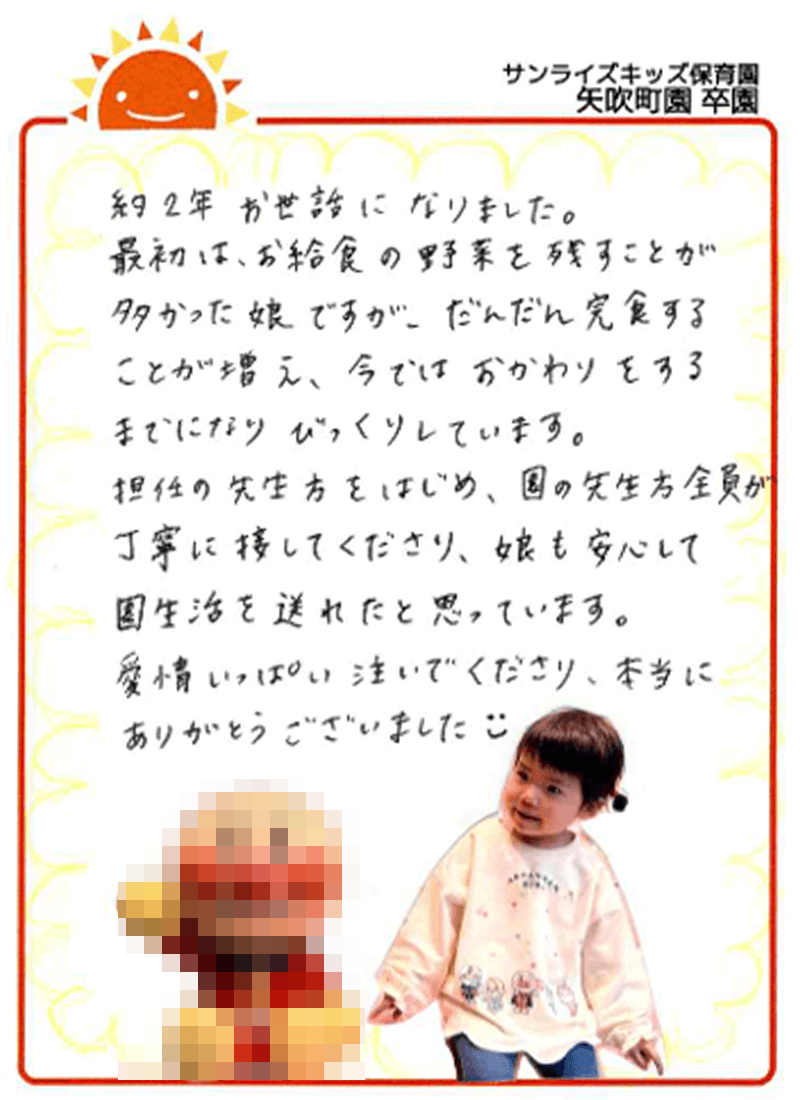 サンライズキッズ保育園
矢吹町園 卒園
約2年 お世話に なりました。
最初は、お給食の野菜を残すことが
多かった娘ですが、だんだん完食する
ことが増え、今では おかわりをする
までになり びっくりしています。
担任の先生方をはじめ、園の先生方全員が
丁寧に接してくださり、娘も安心して
園生活を送れたと思っています。
愛情いっぱい注いでくださり、本当に
ありがとうございました